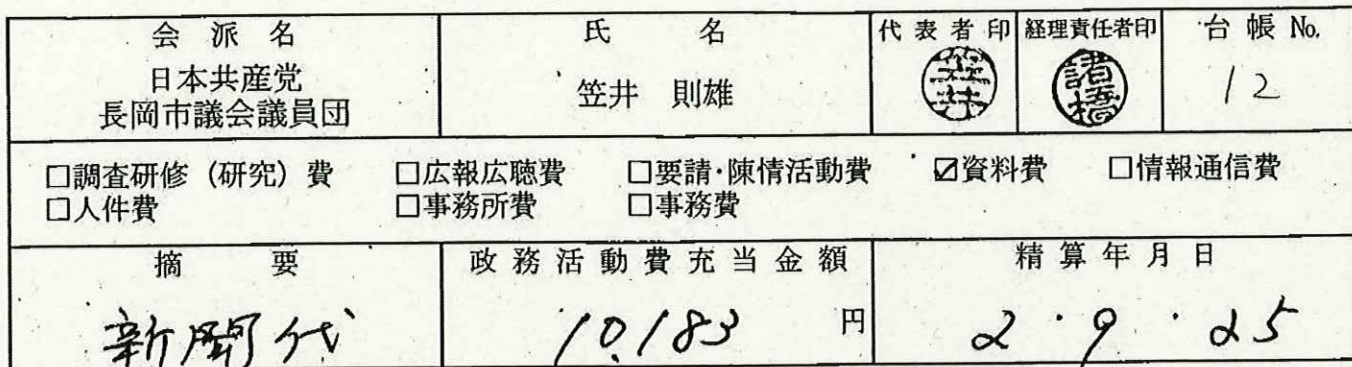 会派名 氏名 代表者印 経理責任者印 台帳No.
日本共産党
長岡市議会議員団
笠井 則雄
笠井
諸橋
12
□調査研修（研究）費 □広報広聴費 □要請・陳情活動費 ☑資料費 □情報通信費
□人件費 □事務所費 □事務費
摘要 政務活動費充当金額 精算年月日
新聞代 10,183 円 2・9・25